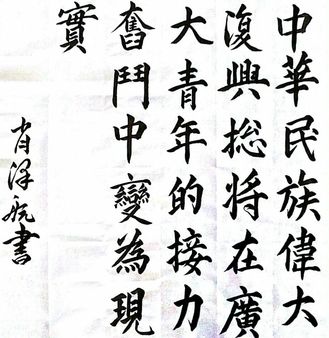 中華民族偉大
復興総将在廣
大青年的接力
奮鬥中變為現
實
肖泽航書